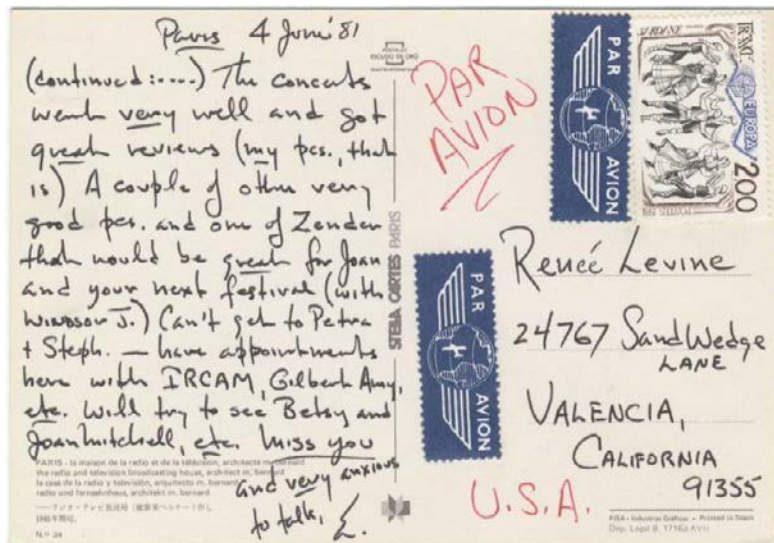 Paris 4 June '81
(continued:....) The concerts
went very well and got
great reviews (my pcs., that
is) A couple of other very
good pcs. and one of Zender
that would be great for Joan
and your next festival (with
WINDSOR J.) Can't get to Petra
+ Steph. — have appointments
here with IRCAM, Gilbert Amy,
etc. Will try to see Betsy and
Joan Mitchell, etc. Miss you
and very anxious
to talk, E.
PARIS - la maison de la radio et de la télévision, architecte m. bernard
the radio and television broadcasting house, architect m. bernard
la casa de la radio y televisión, arquitecto m. bernard
radio und fernsehhaus, architekt m. bernard
N.º 34
SITEBA CARTES PARIS
PAR
AVION
PAR AVION
PAR AVION
SARDANE
FRANCE
EUROPA
POSTES 1981
2,00
Renée Levine
24767 Sand Wedge
LANE
VALENCIA,
CALIFORNIA
91355
U.S.A.
FISA - Industrias Gráficas - Printed in Spain
Dep. Legal B. 17163-XVII